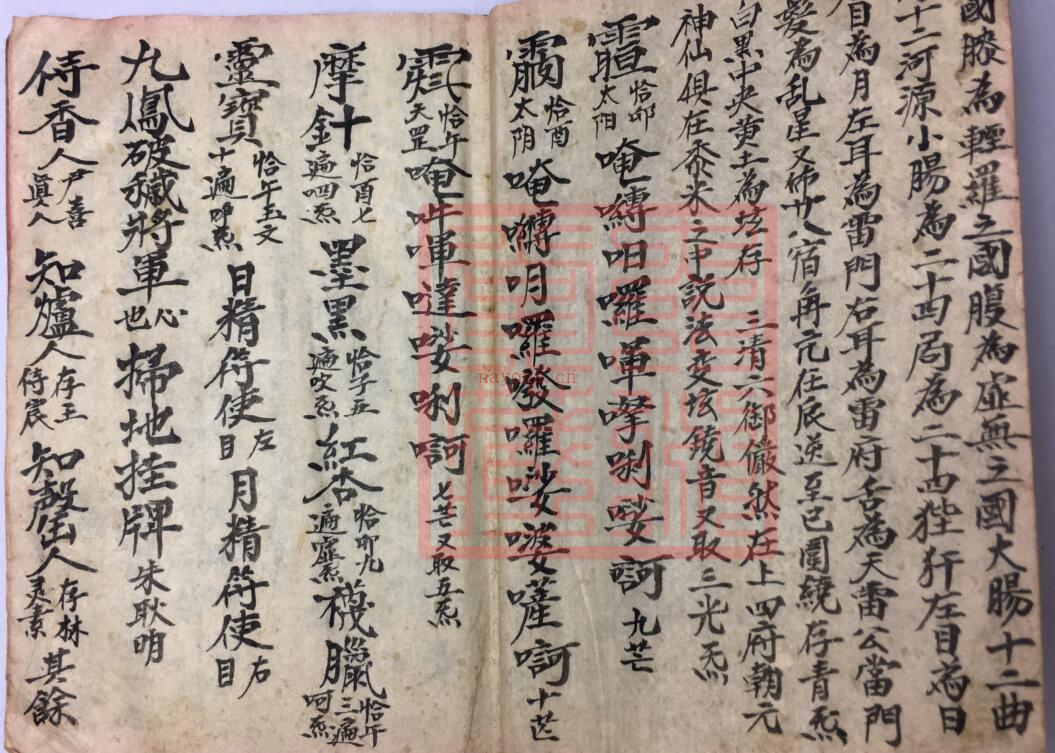 國膝為輕羅之國腹為虛無之國大腸十二曲
十二河源小腸為二十四局為二十四狴犴左目為日
右目為月左耳為雷門右耳為雷府舌為天雷公當門
髮為乱星又佈廿八宿角亢在辰逆至巳圍繞存青炁
白黑中央黄土為坛存三清六御儼然在上四府朝元
神仙俱在黍米之中説法玄坛鏡音又取三光炁
恰卯太阳唵嚩咱囉㖿哩唎娑訶九芒
恰酉太阴唵嚩明囉囉娑婆訶十芒
恰午天罡唵吽㖿噠娑唎訶七芒又取五炁
摩針恰酉七遍呬炁墨黑恰子五遍吹炁紅杏恰卯九遍嘘炁襪臘恰午三遍呵炁
靈寳恰午玉文十遍吽炁日精符使左目月精符使右目
九鳳破穢將軍心也掃地挂牌朱耿明
侍香人尹喜真人知爐人存王侍宸知磬人存林灵素其餘
nayoule.cn